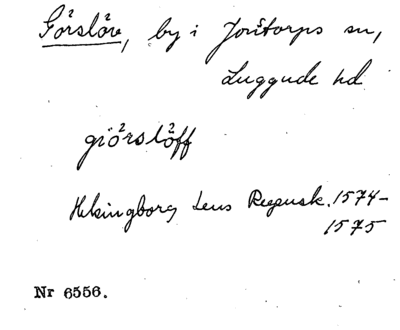 Görslöv, by i Jonstorps sn,
Luggude hd
giörslöff
Helsingborg Lens Regnsk. 1574-
1575
Nr 6556.